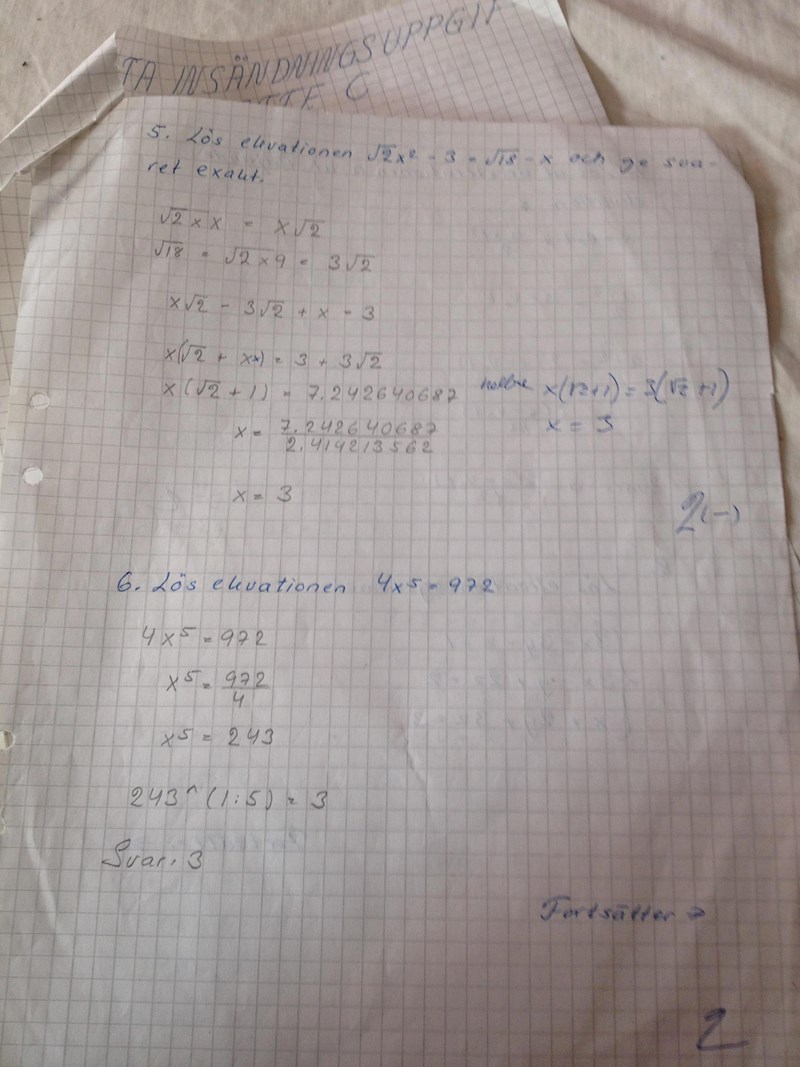 TA INSÄNDNINGSUPPGIT
C
5. Lös ekvationen √2x² - 3 = √18 - x och ge sva-
ret exakt.
√2×x = x√2
√18 = √2×9 = 3√2
x√2 - 3√2 + x - 3
x(√2 + xx) = 3 + 3√2
x(√2 + 1) = 7.242640687 x(√2+1) = 3(√2+1)
x = 7.242640687 / 2.414213562 x = 3
x = 3
2(-)
6. Lös ekvationen 4x⁵ = 972
4x⁵ = 972
x⁵ = 972/4
x⁵ = 243
243^(1:5) = 3
Svar: 3
Fortsätter →
2